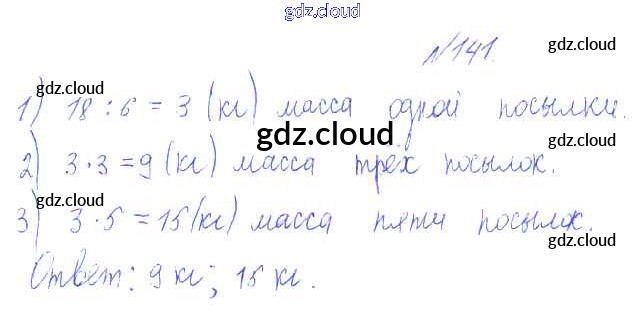 gdz.cloud
№141. gdz.cloud
gdz.cloud
1) 18 : 6 = 3 (кг) масса одной посылки.
gdz.cloud
2) 3 · 3 = 9 (кг) масса трёх посылок.
gdz.cloud gdz.cloud
3) 3 · 5 = 15 (кг) масса пяти посылок.
gdz.cloud
Ответ: 9 кг; 15 кг.